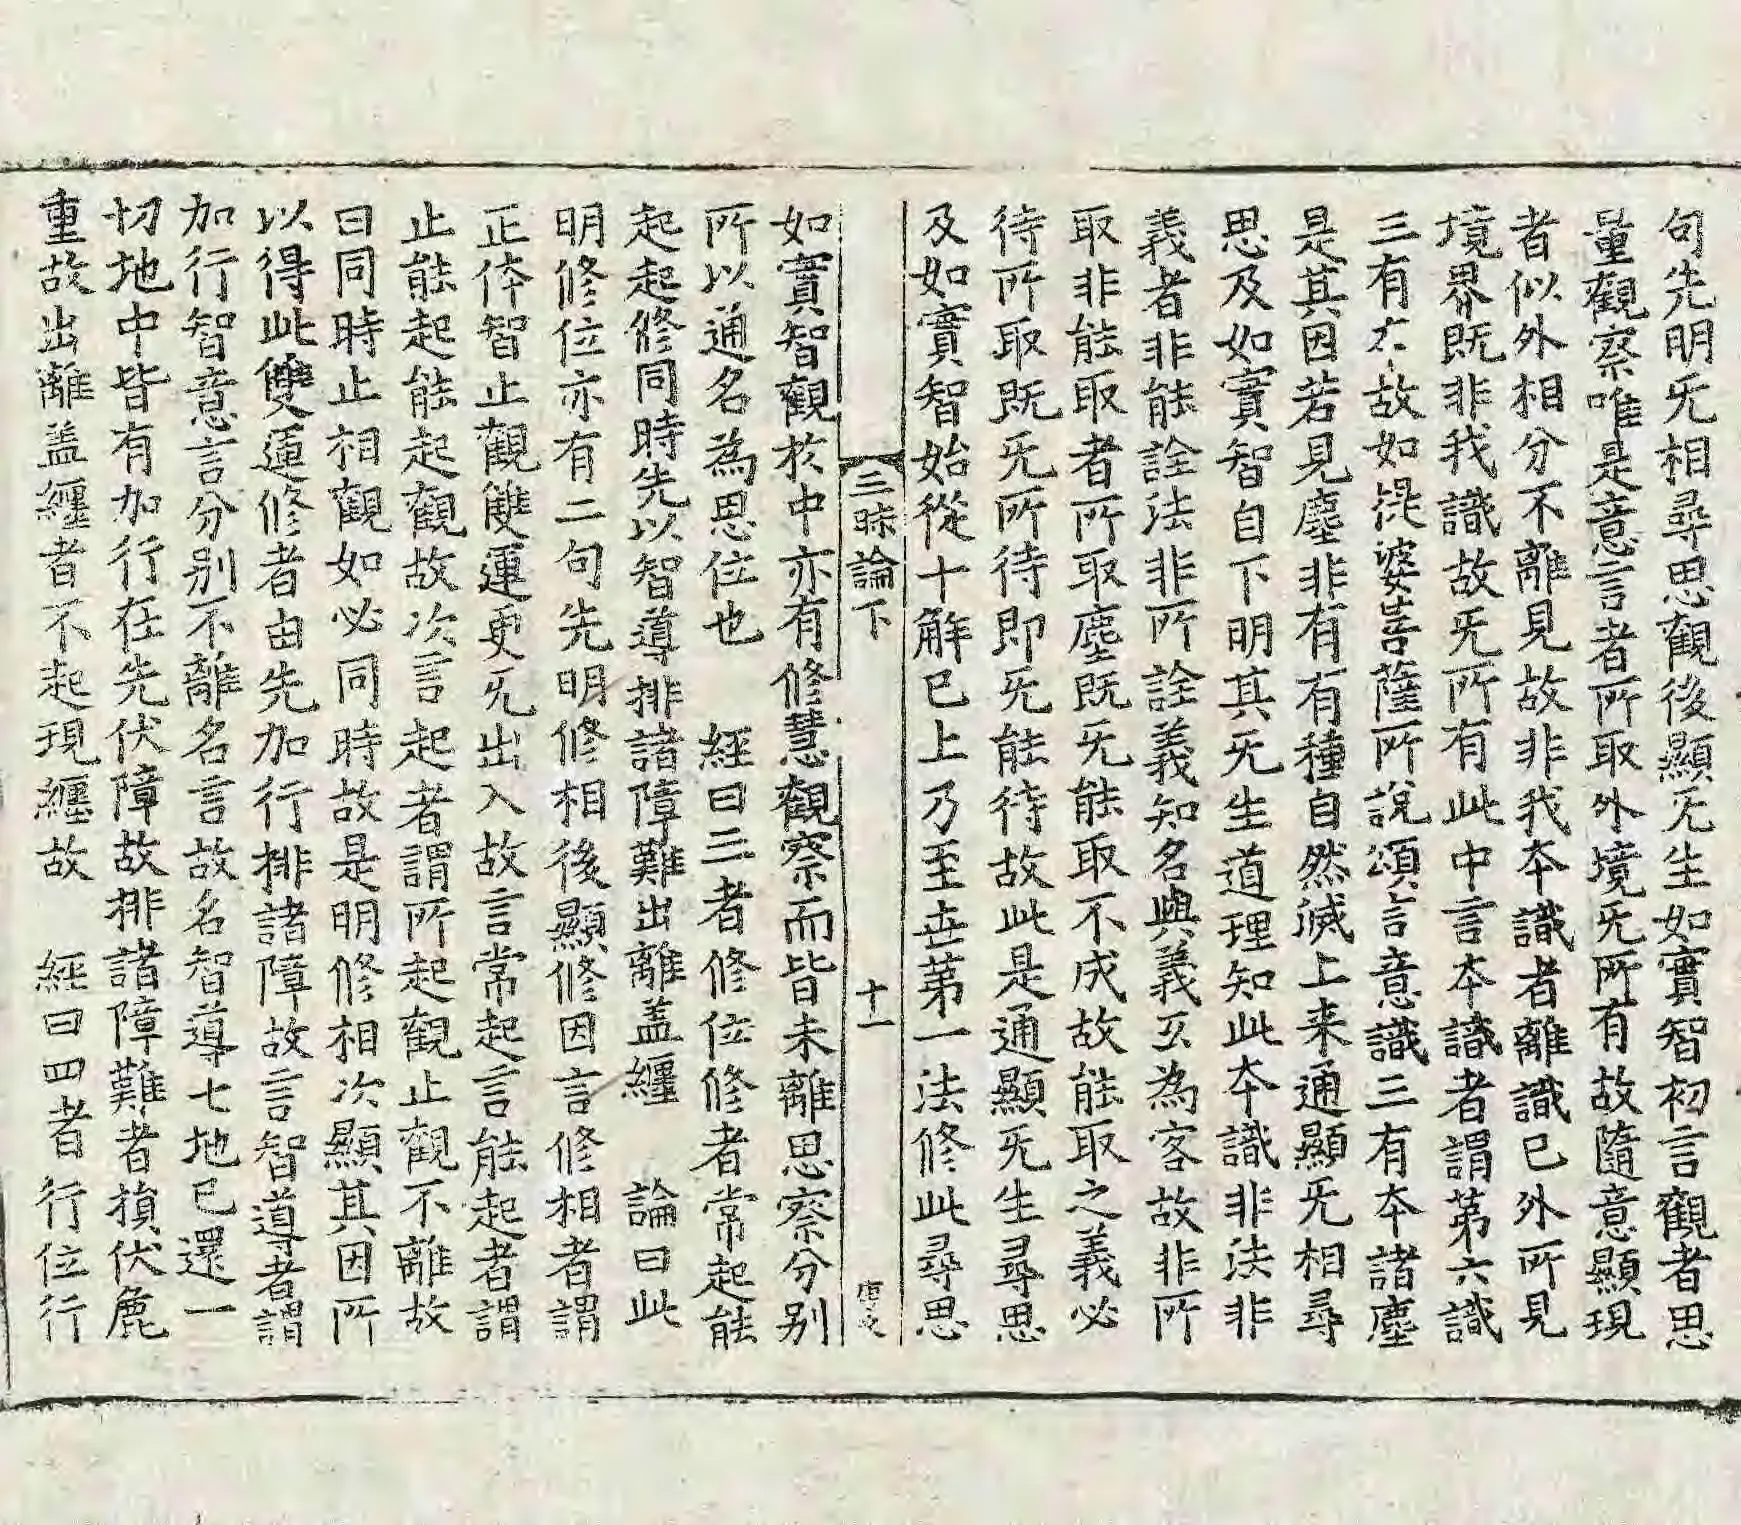 句先明旡相尋思觀後顯旡生如實智初言觀者思
量觀察唯是意言者所取外境旡所有故隨意顯現
者似外相分不離見故非我夲識者離識已外所見
境界旣非我識故旡所有此中言夲識者謂苐六識
三有夲故如提婆菩薩所說頌言意識三有夲諸塵
是其因若見塵非有有種自然滅上来通顯旡相尋
思及如實智自下明其旡生道理知此夲識非法非
義者非能詮法非所詮義知名與義互為客故非所
取非能取者所取塵旣旡能取不成故能取之義必
待所取旣旡所待即旡能待故此是通顯旡生尋思
及如實智始從十解已上乃至世苐一法修此尋思
三昧論下 十一
如實智觀扵中亦有修慧觀察而皆未離思察分别
所以通名為思位也 經曰三者修位修者常起能
起起修同時先以智導排諸障難出離盖纏 論曰此
明修位亦有二句先明修相後顯修因言修相者謂
正体智止觀雙運更旡出入故言常起言能起者謂
止能起能起觀故次言起者謂所起觀止觀不離故
曰同時止相觀如必同時故是明修相次顯其因所
以得此雙運修者由先加行排諸障故言智導者謂
加行智意言分别不離名言故名智導七地已還一
切地中皆有加行在先伏障故排諸障難者損伏麁
重故出離盖纏者不起現纏故 經曰四者行位行